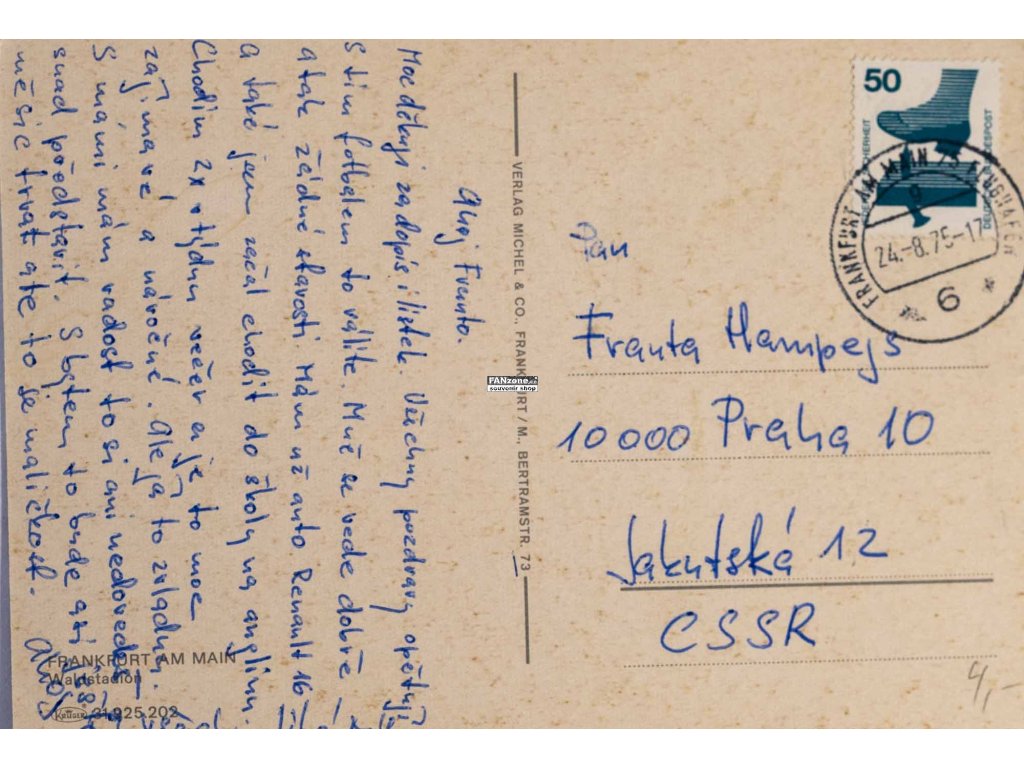 Ahoj Franto.
Moc děkuji za dopis i lístek. Všechny pozdravy opětuji
S tím fotbalem to válíte. Mně se vede dobře –
a tak žádné starosti. Mám už auto Renault 16 –
a také jsem začal chodit do školy na anglinu.
Chodím 2x v týdnu večer a je to moc
zajímavé a náročné. Ale já to zvládnu.
S mámi mám radost to si ani nedovedeš
snad představit. S bytem to bude asi
měsíc trvat ale to je maličkost. Ahoj
VERLAG MICHEL & CO., FRANKFURT / M., BERTRAMSTR. 73
FANzone.cz
souvenir shop
50
SICHERHEIT
DEUTSCHE BUNDESPOST
FRANKFURT AM MAIN FLUGHAFEN
9
24.-8.75-17
6
Pan
Franta Hampejs
10000 Praha 10
Jakutská 12
CSSR
4,-
FRANKFURT AM MAIN
Waldstadion
KRÜGER 31.925.202